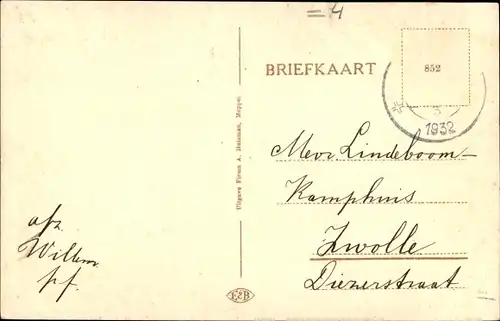 = 4
BRIEFKAART
852
1932
Uitgave Firma A. Huisman, Meppel
Mevr Lindeboom-
Kamphuis
Zwolle
Diezerstraat
afz
Willem
pf.
E&B